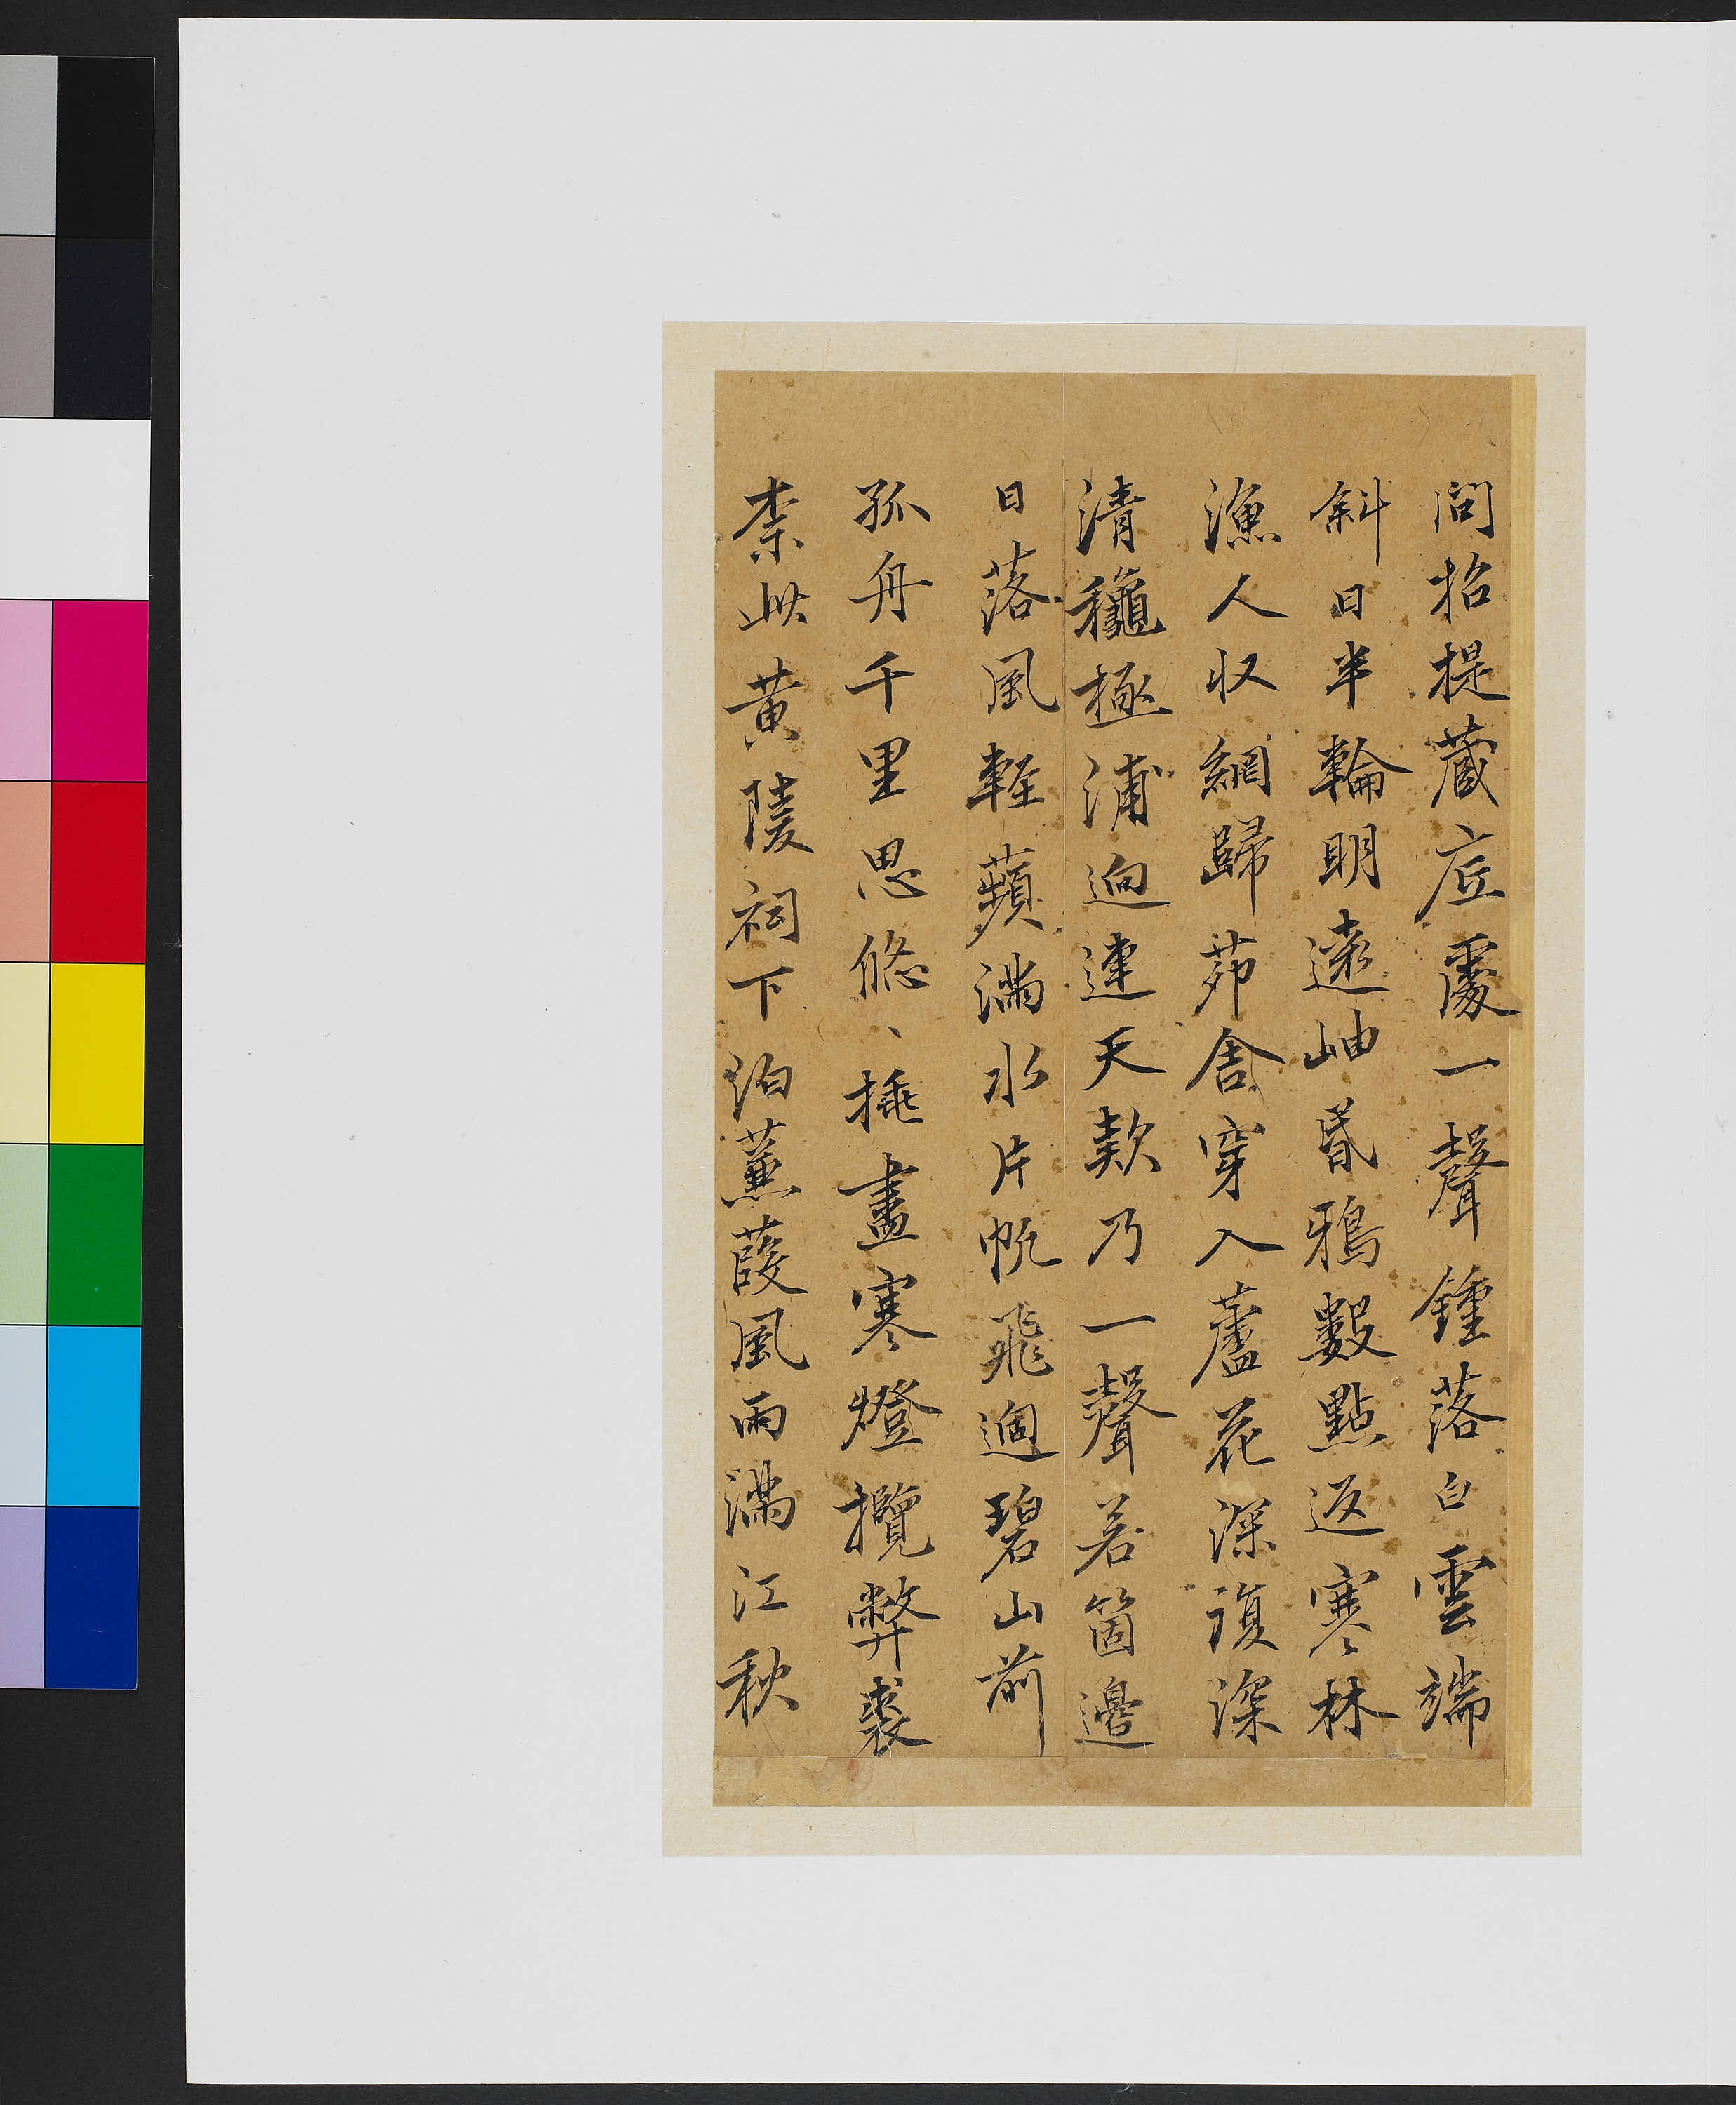 問招提藏底處一聲鍾落白雲端
斜日半輪明遠岫昏鴉數點返寒林
漁人収網歸茆舍穿入蘆花深復深
清龝極浦迥連天欵乃一聲若箇邊
日落風輕蘋滿水片帆飛過碧山前
孤舟千里思悠、挑盡寒燈攬弊裘
柰此黃陵祠下泊蒹葭風雨滿江秋